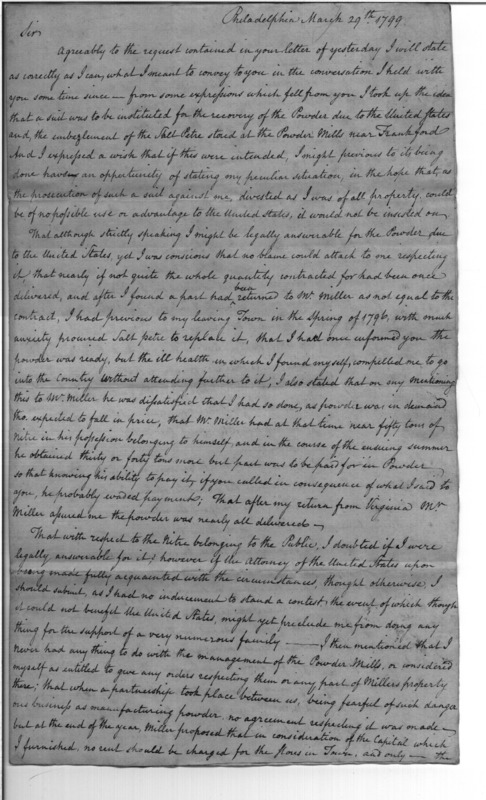 Philadelphia March 29th. 1799
Sir
Agreeably to the request contained in your letter of yesterday I will state
as correctly as I can, what I meant to convey to you in the conversation I held with
you some time since — from some expressions which fell from you I took up the idea
that a suit was to be instituted for the recovery of the Powder due to the United States
and, the embezlement of the Salt Petre stored at the Powder Mills near Frankford
And I expressed a wish that if this were intended, I might previous to it being
done have an opportunity of stating my peculiar situation, in the hope that, as
the prosecution of such a suit against me, divested as I was of all property, could
be of no possible use or advantage to the United States, it would not be insisted on —
That although strictly speaking I might be legally answerable for the Powder due
to the United States, yet I was conscious that no blame could attach to me respecting
it, that nearly if not quite the whole quantity contracted for had been once
delivered, and after I found a part had been returned to Mr. Miller as not equal to the
contract, I had previous to my leaving Town in the Spring of 1796, with much
anxiety procured Salt petre to replace it, that I had once informed you the
powder was ready, but the ill health in which I found myself, compelled me to go
into the Country without attending further to it, I also stated that on my mentioning
this to Mr. Miller he was dissatisfied that I had so done, as powder was in demand
tho. expected to fall in price, that Mr. Miller had at that time near fifty tons of
Nitre in his possession belonging to himself, and in the course of the ensuing summer
he obtained thirty or forty tons more but part was to be paid for in Powder
so that knowing his ability to pay it, if you called in consequence of what I said to
you, he probably evaded payment; That after my return from Virginia Mr.
Miller assured me the powder was nearly all delivered —
That with respect to the Nitre belonging to the Public, I doubted if I were
legally answerable for it; however if the Attorney of the United States upon
being made fully acquainted with the circumstances, thought otherwise, I
should submit, as I had no inducement to stand a contest, the event of which though
it could not benefit the United States, might yet preclude me from doing any
thing for the support of a very numerous family — I then mentioned that I
never had any thing to do with the management of the Powder Mills, or considered
myself as entitled to give any orders respecting them or any part of Millers property
there; that when a partnership took place between us, being fearful of such danger
ous business as manufacturing powder, no agreement respecting it was made —
but at the end of the year, Miller proposed that in consideration of the Capital which
I furnished, no rent should be charged for the Stores in Town, and only — the